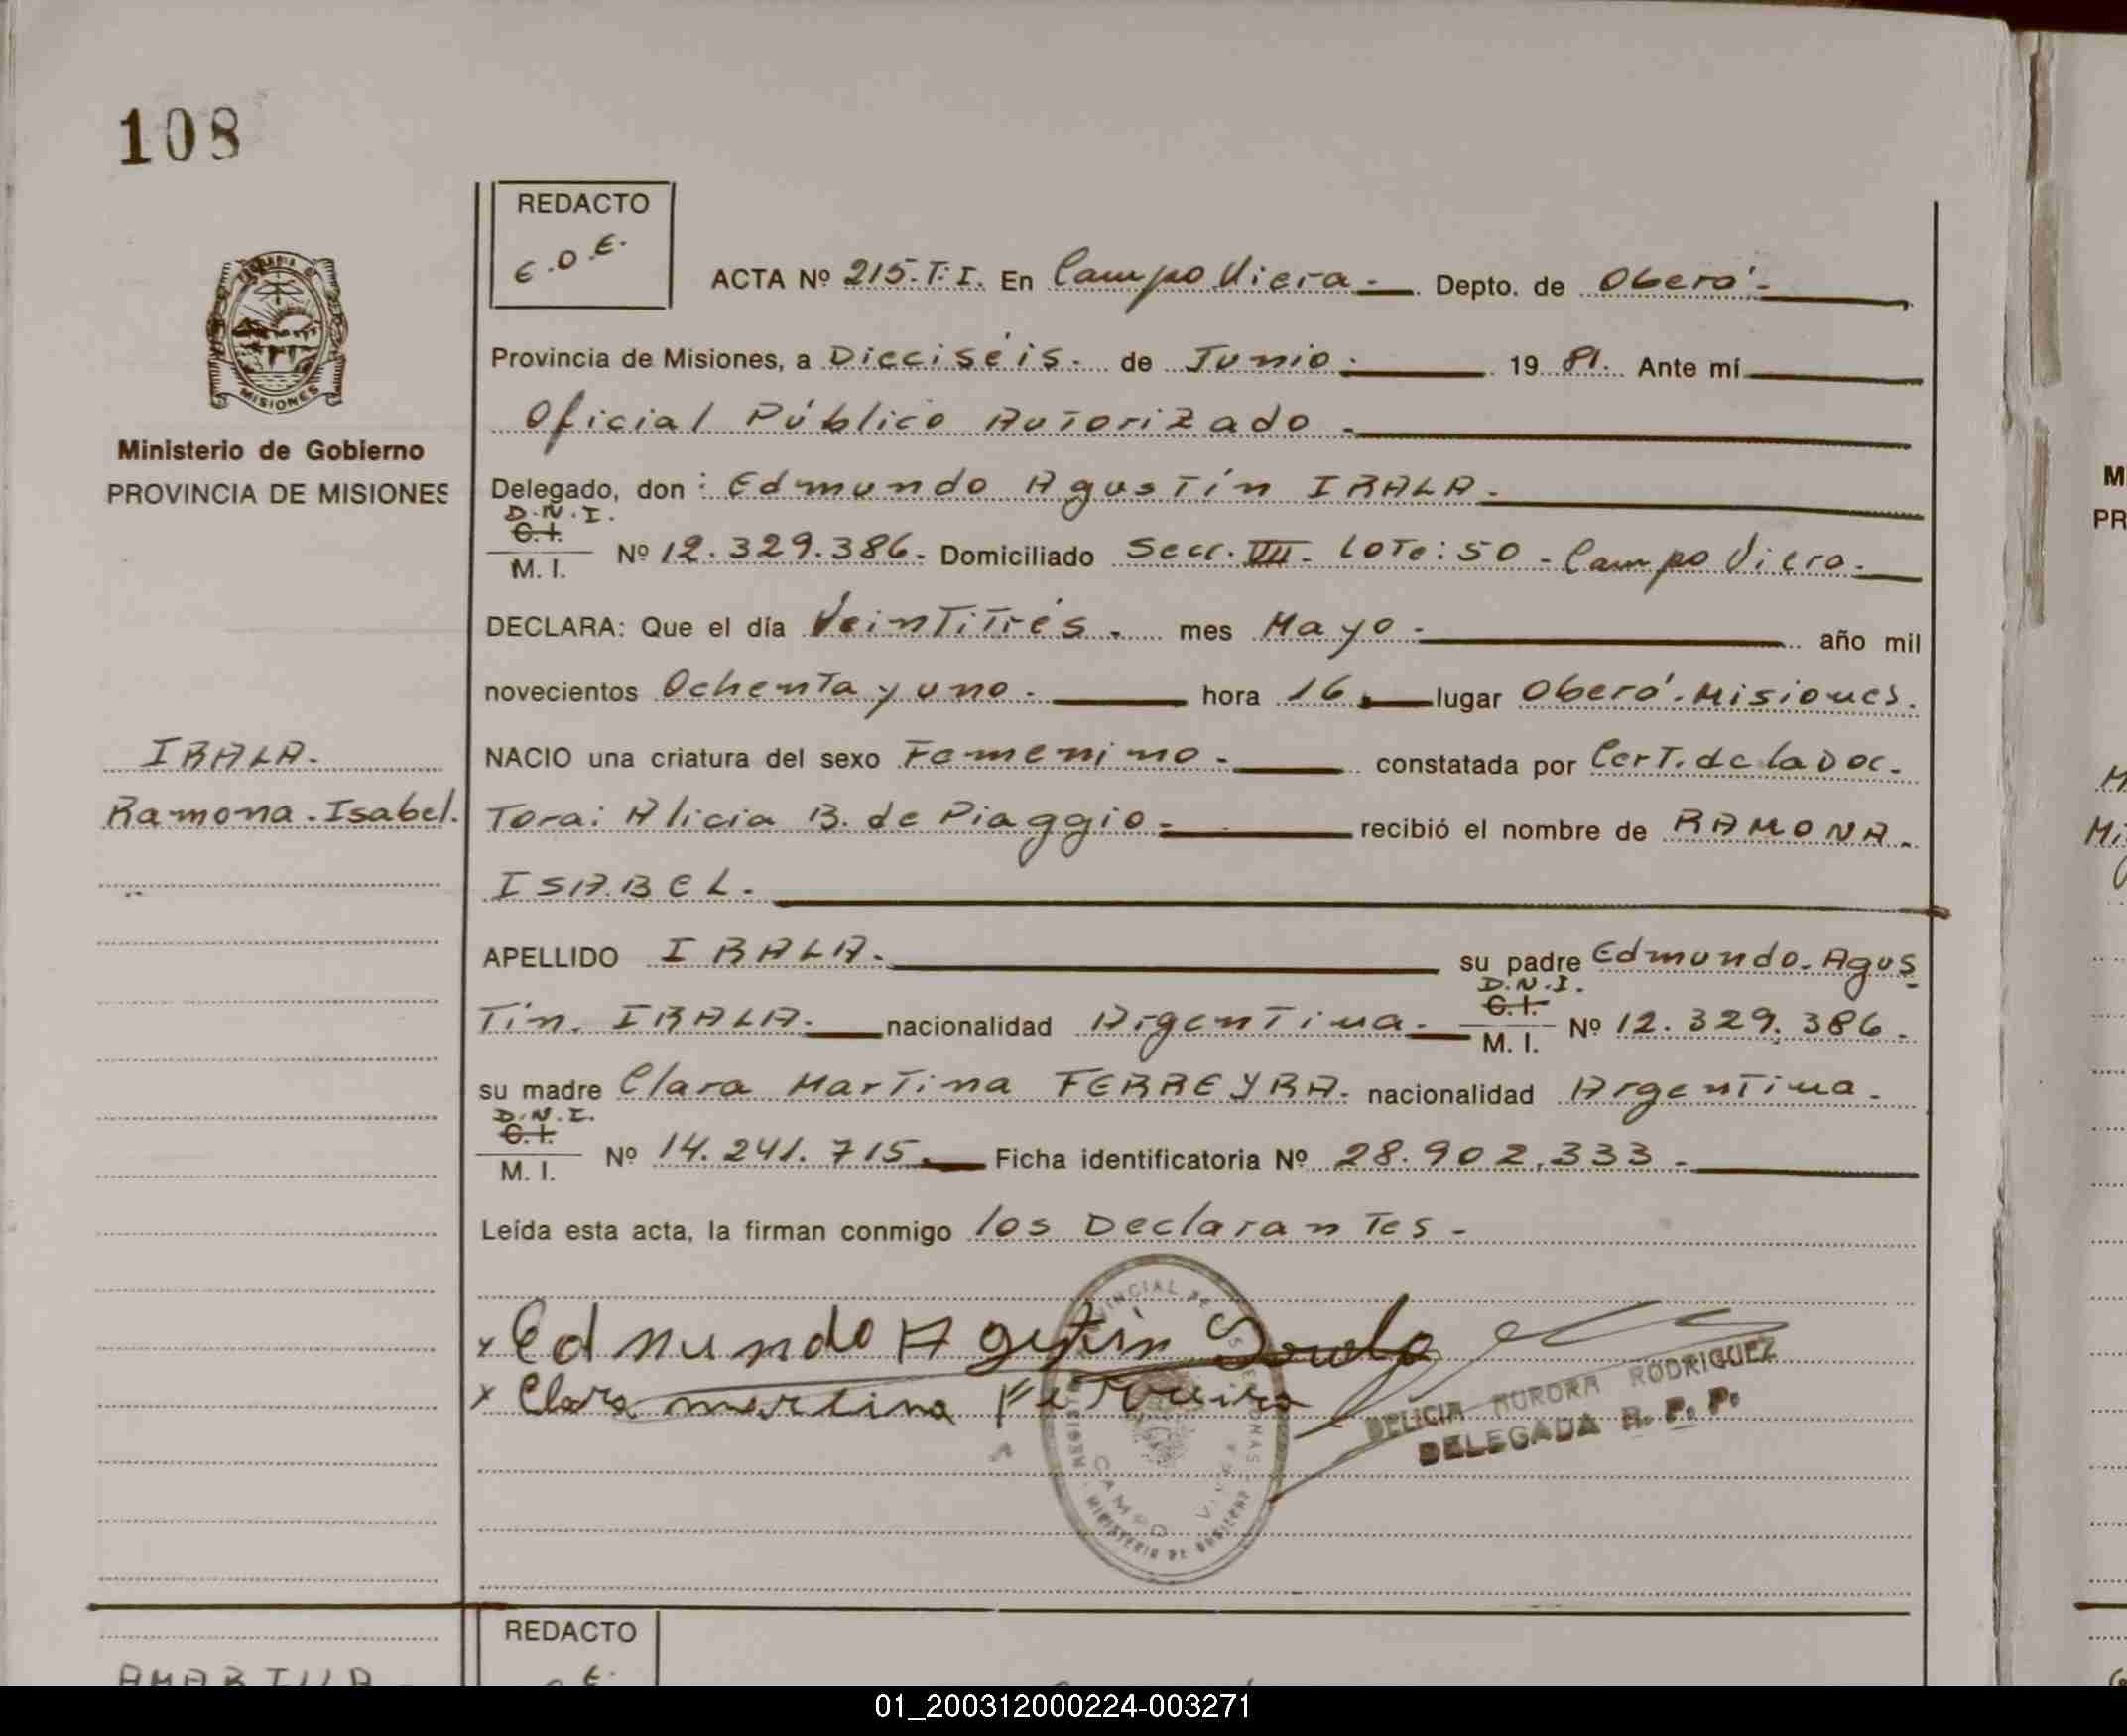 108
REDACTO
E.O.E.
ACTA Nº 215.T.I. En Campo Viera.- Depto. de Oberá.-
Provincia de Misiones, a Dieciséis.- de Junio.- 19 81. Ante mí
Oficial Público Autorizado.-
Ministerio de Gobierno
PROVINCIA DE MISIONES
Delegado, don: Edmundo Agustín IRALA.-
D.N.I.
C.I.
M. I. Nº 12.329.386.- Domiciliado Secc. VII - Lote: 50 - Campo Viera.-
DECLARA: Que el día Veintitrés.- mes Mayo.- año mil
novecientos Ochenta y uno.- hora 16.- lugar Oberá.-Misiones.
IRALA.
Ramona.Isabel.
NACIO una criatura del sexo Femenino.- constatada por Cert. de la Doc-
Tora: Alicia B. de Piaggio.- recibió el nombre de RAMONA.-
ISABEL.
APELLIDO IRALA.- su padre Edmundo. Agus
Tín. IRALA.- nacionalidad Argentina.-
D.N.I.
C.I.
M. I. Nº 12.329.386.-
su madre Clara Martina FERREYRA.- nacionalidad Argentina.-
D.N.I.
C.I.
M. I. Nº 14.241.715.- Ficha identificatoria Nº 28.902.333.-
Leída esta acta, la firman conmigo los Declarantes.-
x Edmundo Agustin
x Clara martina Ferreira
DELICIA AURORA RODRIGUEZ
DELEGADA R. P. P.
CAMPO VIERA
MINISTERIO DE GOBIERNO
REDACTO
01_200312000224-003271